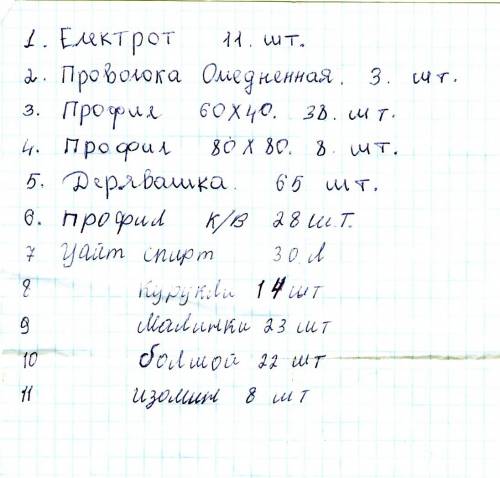 1. Електрот 11. шт.
2. Проволока Омедненная. 3. шт.
3. Профил 60х40. 38. шт.
4. Профил 80х80. 8. шт.
5. Дерявашка. 65 шт.
6. профил к/в 28 шт.
7 Уайт спирт 30 л
8 курукли 14 шт
9 малинки 23 шт
10 болшой 22 шт
11 изолин 8 шт